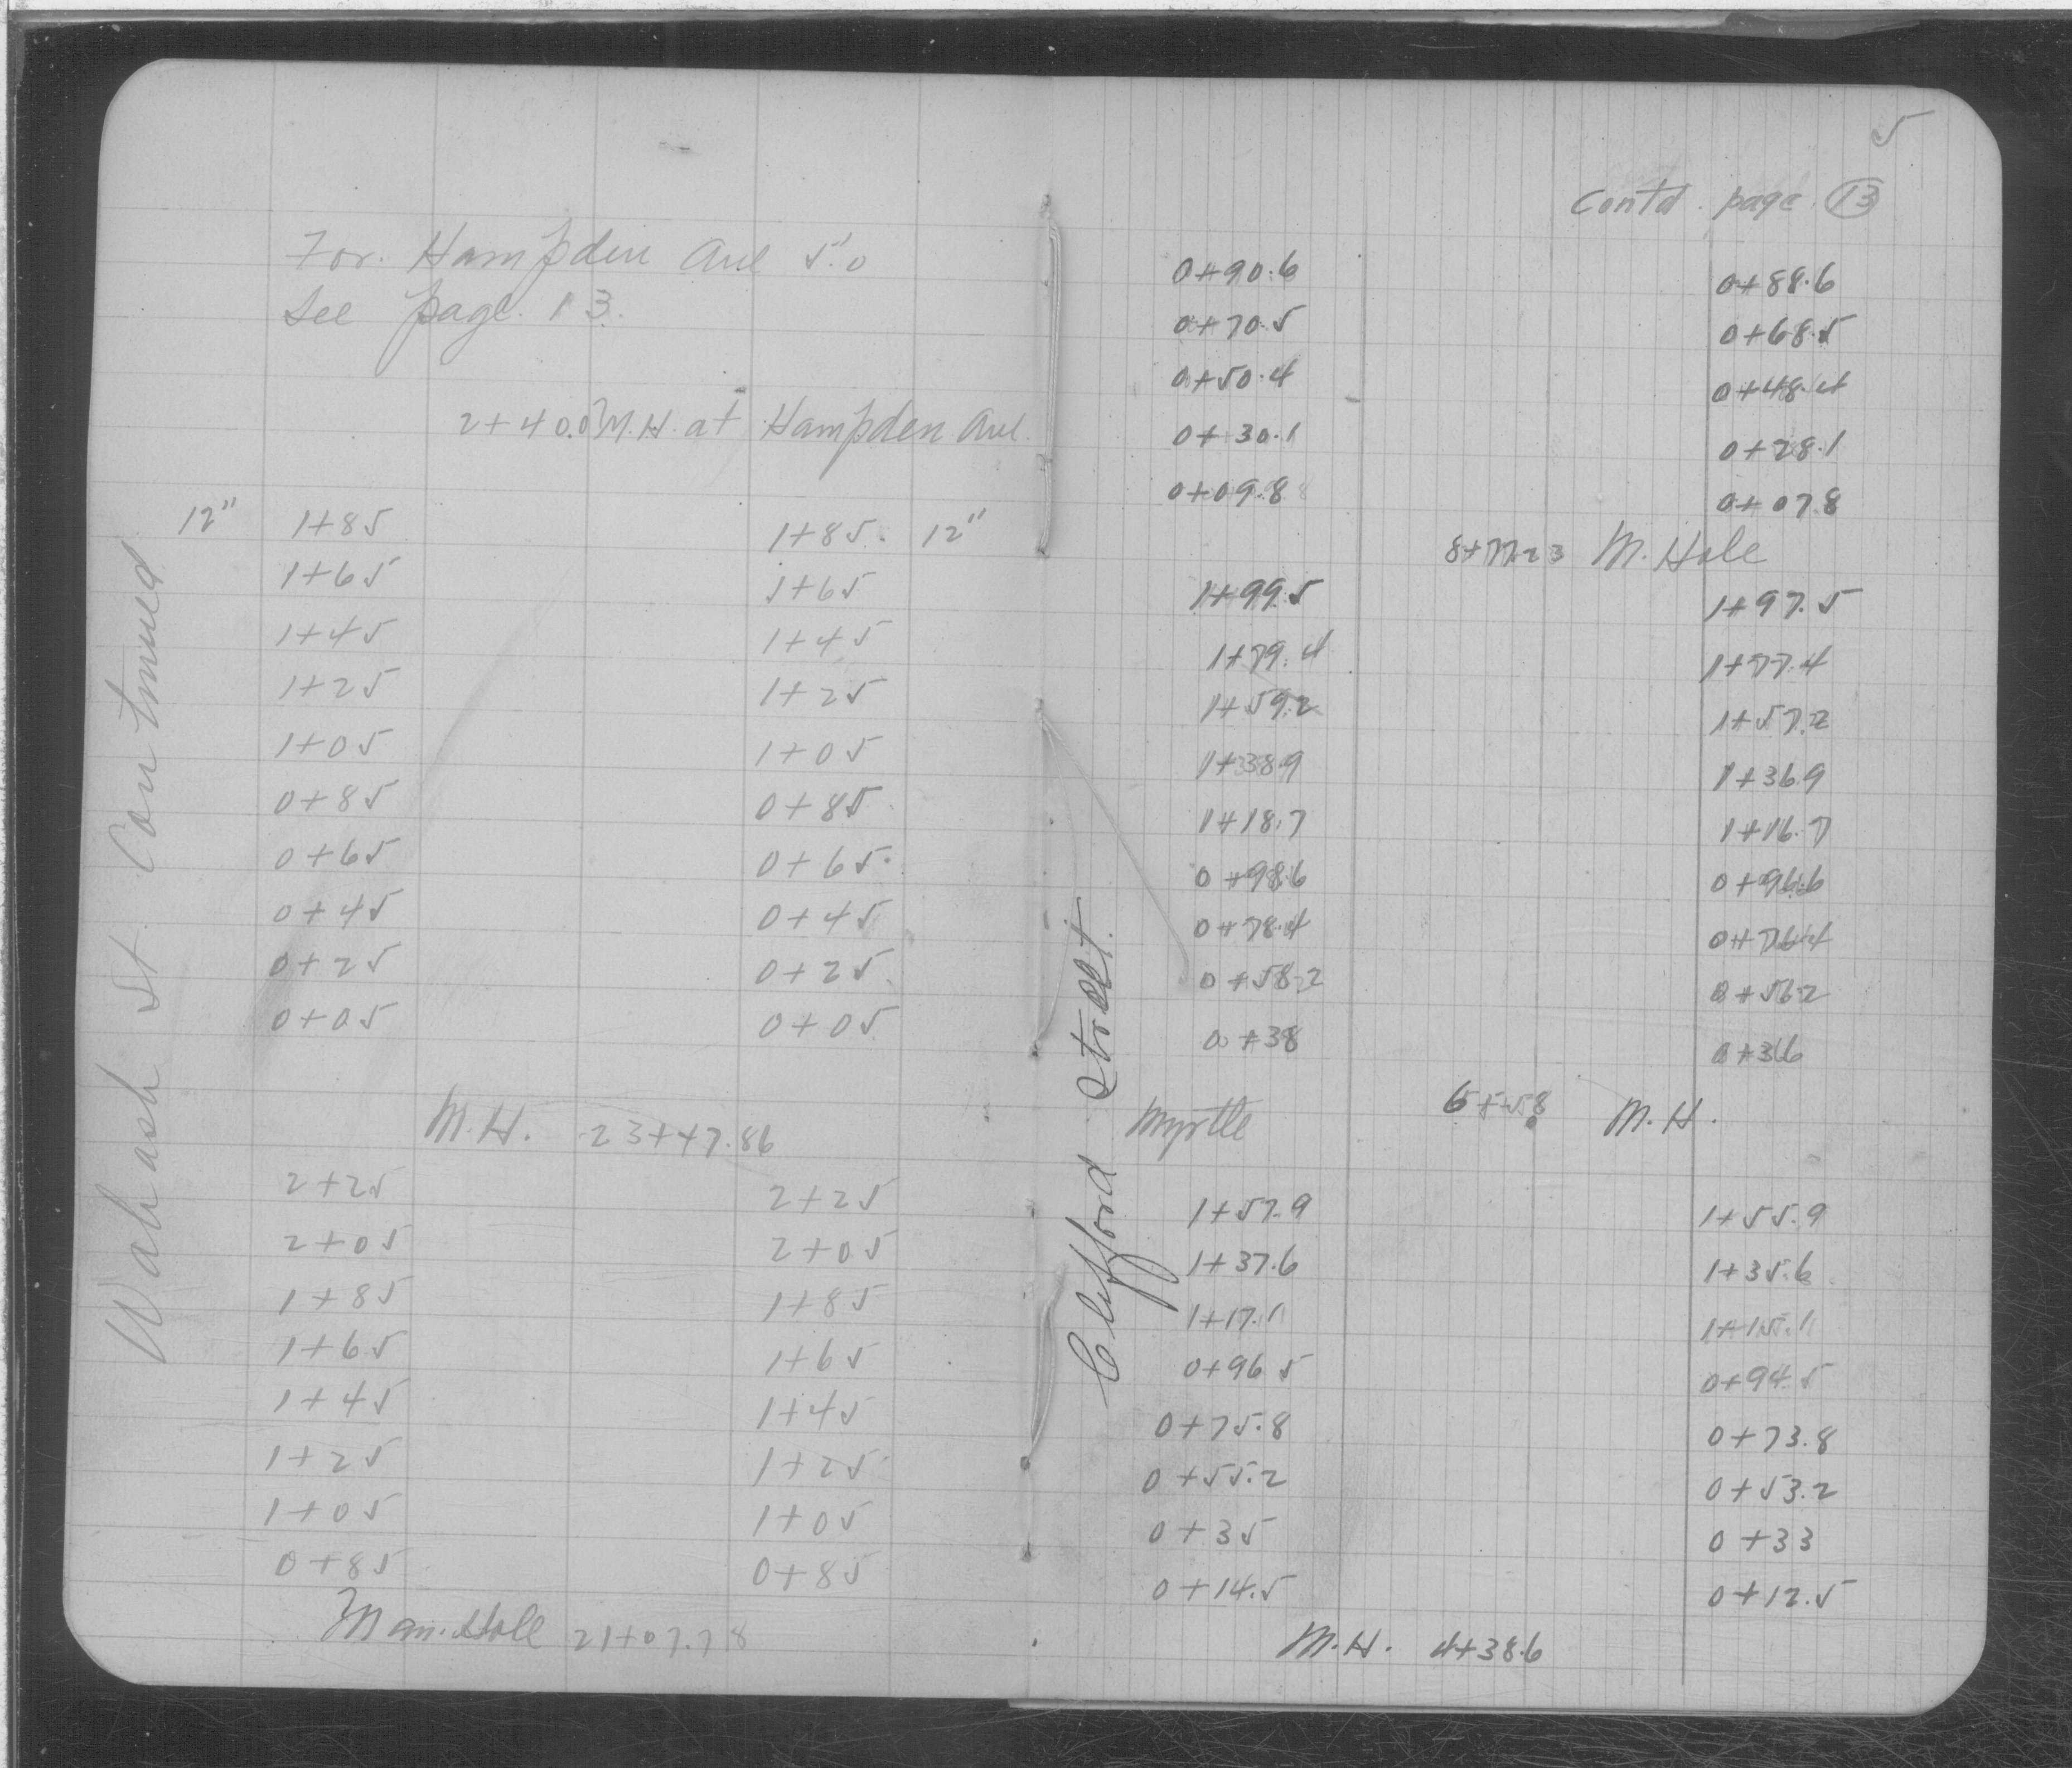 Wabash St. Continued
For. Hampden Ave 5'.0
See page. 13.
2+40.0 M.H. at Hampden Ave.
12" 1+85 1+85. 12"
1+65 1+65
1+45 1+45
1+25 1+25
1+05 1+05
0+85 0+85
0+65 0+65.
0+45 0+45
0+25 0+25.
0+05 0+05
M.H. 23+47.86
2+25 2+25
2+05 2+05
1+85 1+85
1+65 1+65
1+45 1+45
1+25 1+25
1+05 1+05
0+85 0+85
Man.Hole 21+07.78
5
Contd. page. 13
Clifford Street.
0+90.6 0+88.6
0+70.5 0+68.5
0+50.4 0+48.4
0+30.1 0+28.1
0+09.8 0+07.8
8+77.23 M. Hole
1+99.5 1+97.5
1+79.4 1+77.4
1+59.2 1+57.2
1+38.9 1+36.9
1+18.7 1+16.7
0+98.6 0+96.6
0+78.4 0+76.4
0+58.2 0+56.2
0+38 0+36
Myrtle 6+58 M.H.
1+57.9 1+55.9
1+37.6 1+35.6
1+17.1 1+15.1
0+96.5 0+94.5
0+75.8 0+73.8
0+55.2 0+53.2
0+35 0+33
0+14.5 0+12.5
M.H. 4+38.6